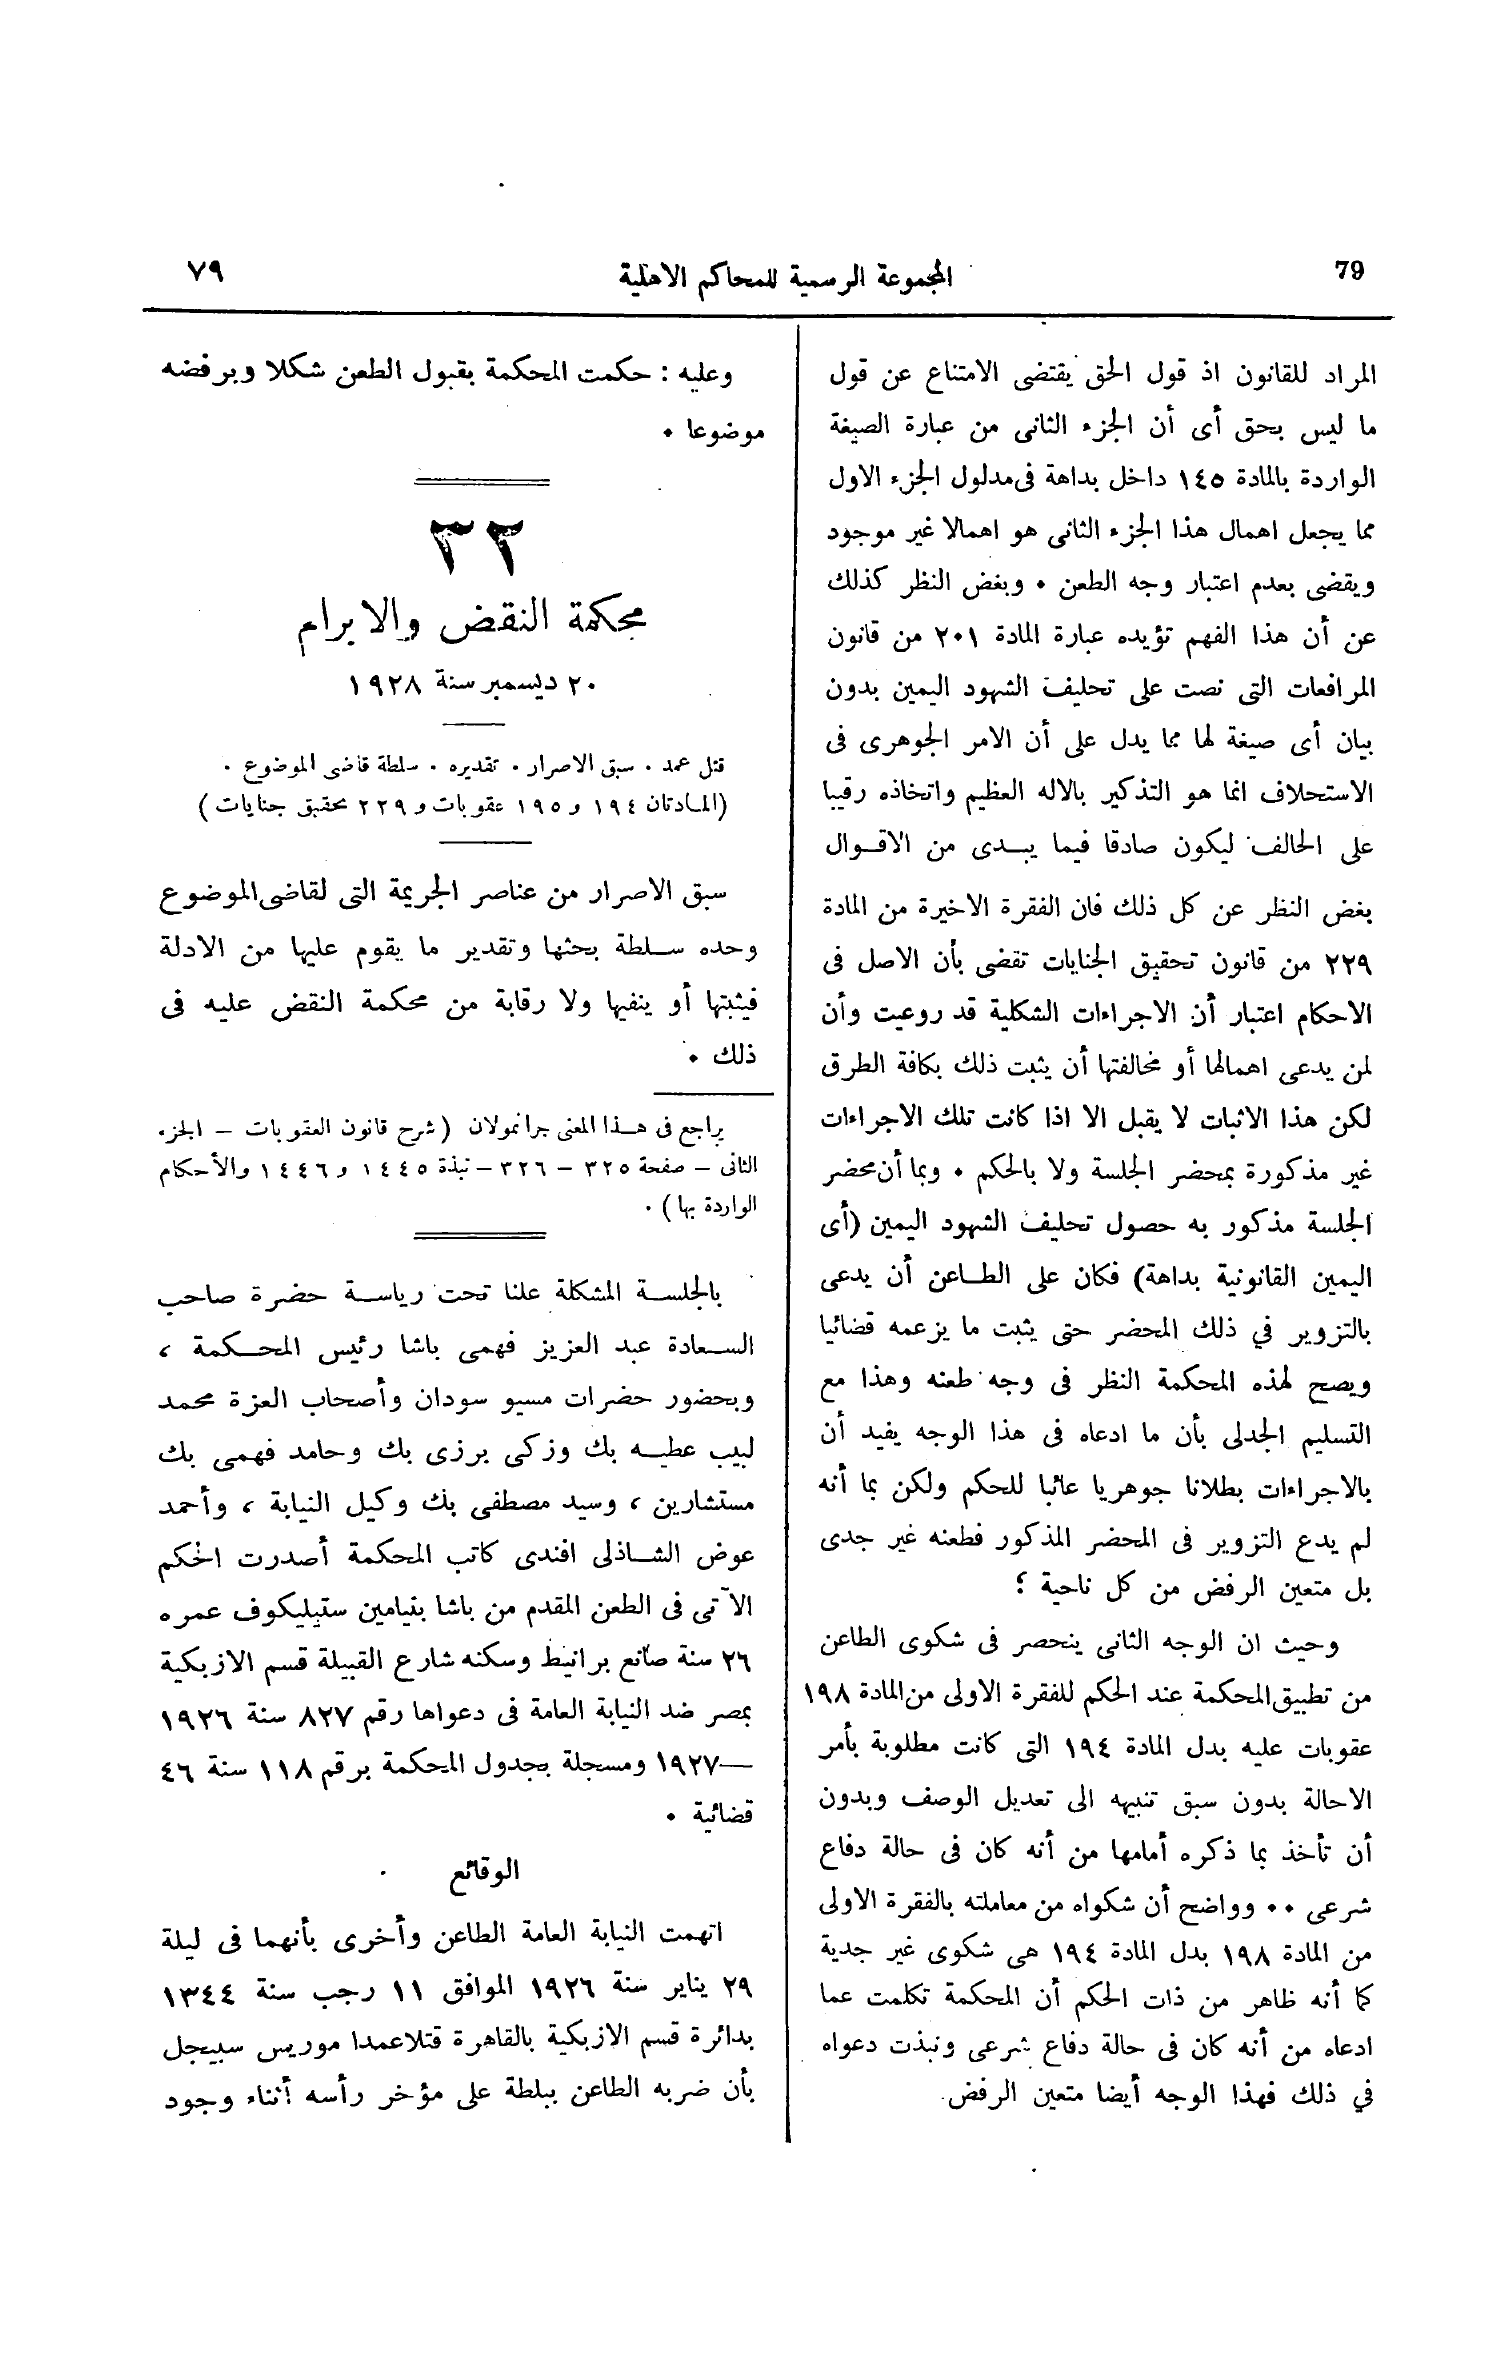 79
المجموعة الرسمية للمحاكم الاهلية
٧٩
المراد للقانون اذ قول الحق يقتضى الامتناع عن قول
ما ليس بحق أى أن الجزء الثانى من عبارة الصيغة
الواردة بالمادة ١٤٥ داخل بداهة فى مدلول الجزء الاول
مما يجعل اهمال هذا الجزء الثانى هو اهمالا غير موجود
ويقضى بعدم اعتبار وجه الطعن ٠ وبغض النظر كذلك
عن أن هذا الفهم تؤيده عبارة المادة ٢٠١ من قانون
المرافعات التى نصت على تحليف الشهود اليمين بدون
بيان أى صيغة لها مما يدل على أن الامر الجوهرى فى
الاستحلاف انما هو التذكير بالاله العظيم واتخاذه رقيبا
على الحالف ليكون صادقا فيما يبدى من الاقوال
بغض النظر عن كل ذلك فان الفقرة الاخيرة من المادة
٢٢٩ من قانون تحقيق الجنايات تقضى بأن الاصل فى
الاحكام اعتبار أن الاجراءات الشكلية قد روعيت وأن
لمن يدعى اهمالها أو مخالفتها أن يثبت ذلك بكافة الطرق
لكن هذا الاثبات لا يقبل الا اذا كانت تلك الاجراءات
غير مذكورة بمحضر الجلسة ولا بالحكم ٠ وبما أن محضر
الجلسة مذكور به حصول تحليف الشهود اليمين (أى
اليمين القانونية بداهة) فكان على الطاعن أن يدعى
بالتزوير في ذلك المحضر حتى يثبت ما يزعمه قضائيا
ويصح لهذه المحكمة النظر فى وجه طعنه وهذا مع
التسليم الجدلى بأن ما ادعاه فى هذا الوجه يفيد أن
بالاجراءات بطلانا جوهريا عائبا للحكم ولكن بما أنه
لم يدع التزوير فى المحضر المذكور فطعنه غير جدى
بل متعين الرفض من كل ناحية ؛
وحيث ان الوجه الثانى ينحصر فى شكوى الطاعن
من تطبيق المحكمة عند الحكم للفقرة الاولى من المادة ١٩٨
عقوبات عليه بدل المادة ١٩٤ التى كانت مطلوبة بأمر
الاحالة بدون سبق تنبيهه الى تعديل الوصف وبدون
أن تأخذ بما ذكره أمامها من أنه كان فى حالة دفاع
شرعى ٠٠ وواضح أن شكواه من معاملته بالفقرة الاولى
من المادة ١٩٨ بدل المادة ١٩٤ هى شكوى غير جدية
كما أنه ظاهر من ذات الحكم أن المحكمة تكلمت عما
ادعاه من أنه كان فى حالة دفاع شرعى ونبذت دعواه
في ذلك فهذا الوجه أيضا متعين الرفض.
وعليه : حكمت المحكمة بقبول الطعن شكلا وبرفضه
موضوعا ٠
٣٣
محكمة النقض والابرام
٢٠ ديسمبر سنة ١٩٢٨
قتل عمد ٠ سبق الاصرار ٠ تقديره ٠ سلطة قاضى الموضوع ٠
(المادتان ١٩٤ و ١٩٥ عقوبات و ٢٢٩ تحقيق جنايات)
سبق الاصرار من عناصر الجريمة التى لقاضى الموضوع
وحده سلطة بحثها وتقدير ما يقوم عليها من الادلة
فيثبتها أو ينفيها ولا رقابة من محكمة النقض عليه فى
ذلك ٠
يراجع فى هذا المعنى جرانمولان (شرح قانون العقوبات – الجزء
الثانى – صفحة ٣٢٥ – ٣٢٦ – نبذة ١٤٤٥ و ١٤٤٦ والأحكام
الواردة بها) ٠
بالجلسة المشكلة علنا تحت رياسة حضرة صاحب
السعادة عبد العزيز فهمى باشا رئيس المحكمة ،
وبحضور حضرات مسيو سودان وأصحاب العزة محمد
لبيب عطيه بك وزكى برزى بك وحامد فهمى بك
مستشارين ، وسيد مصطفى بك وكيل النيابة ، وأحمد
عوض الشاذلى افندى كاتب المحكمة أصدرت الحكم
الآتى فى الطعن المقدم من باشا بنيامين ستبليكوف عمره
٢٦ سنة صانع برانيط وسكنه شارع القبيلة قسم الازبكية
بمصر ضد النيابة العامة فى دعواها رقم ٨٢٧ سنة ١٩٢٦
—١٩٢٧ ومسجلة بجدول المحكمة برقم ١١٨ سنة ٤٦
قضائية ٠
الوقائع
اتهمت النيابة العامة الطاعن وأخرى بأنهما فى ليلة
٢٩ يناير سنة ١٩٢٦ الموافق ١١ رجب سنة ١٣٤٤
بدائرة قسم الازبكية بالقاهرة قتلا عمدا موريس سبيجل
بأن ضربه الطاعن ببلطة على مؤخر رأسه أثناء وجود